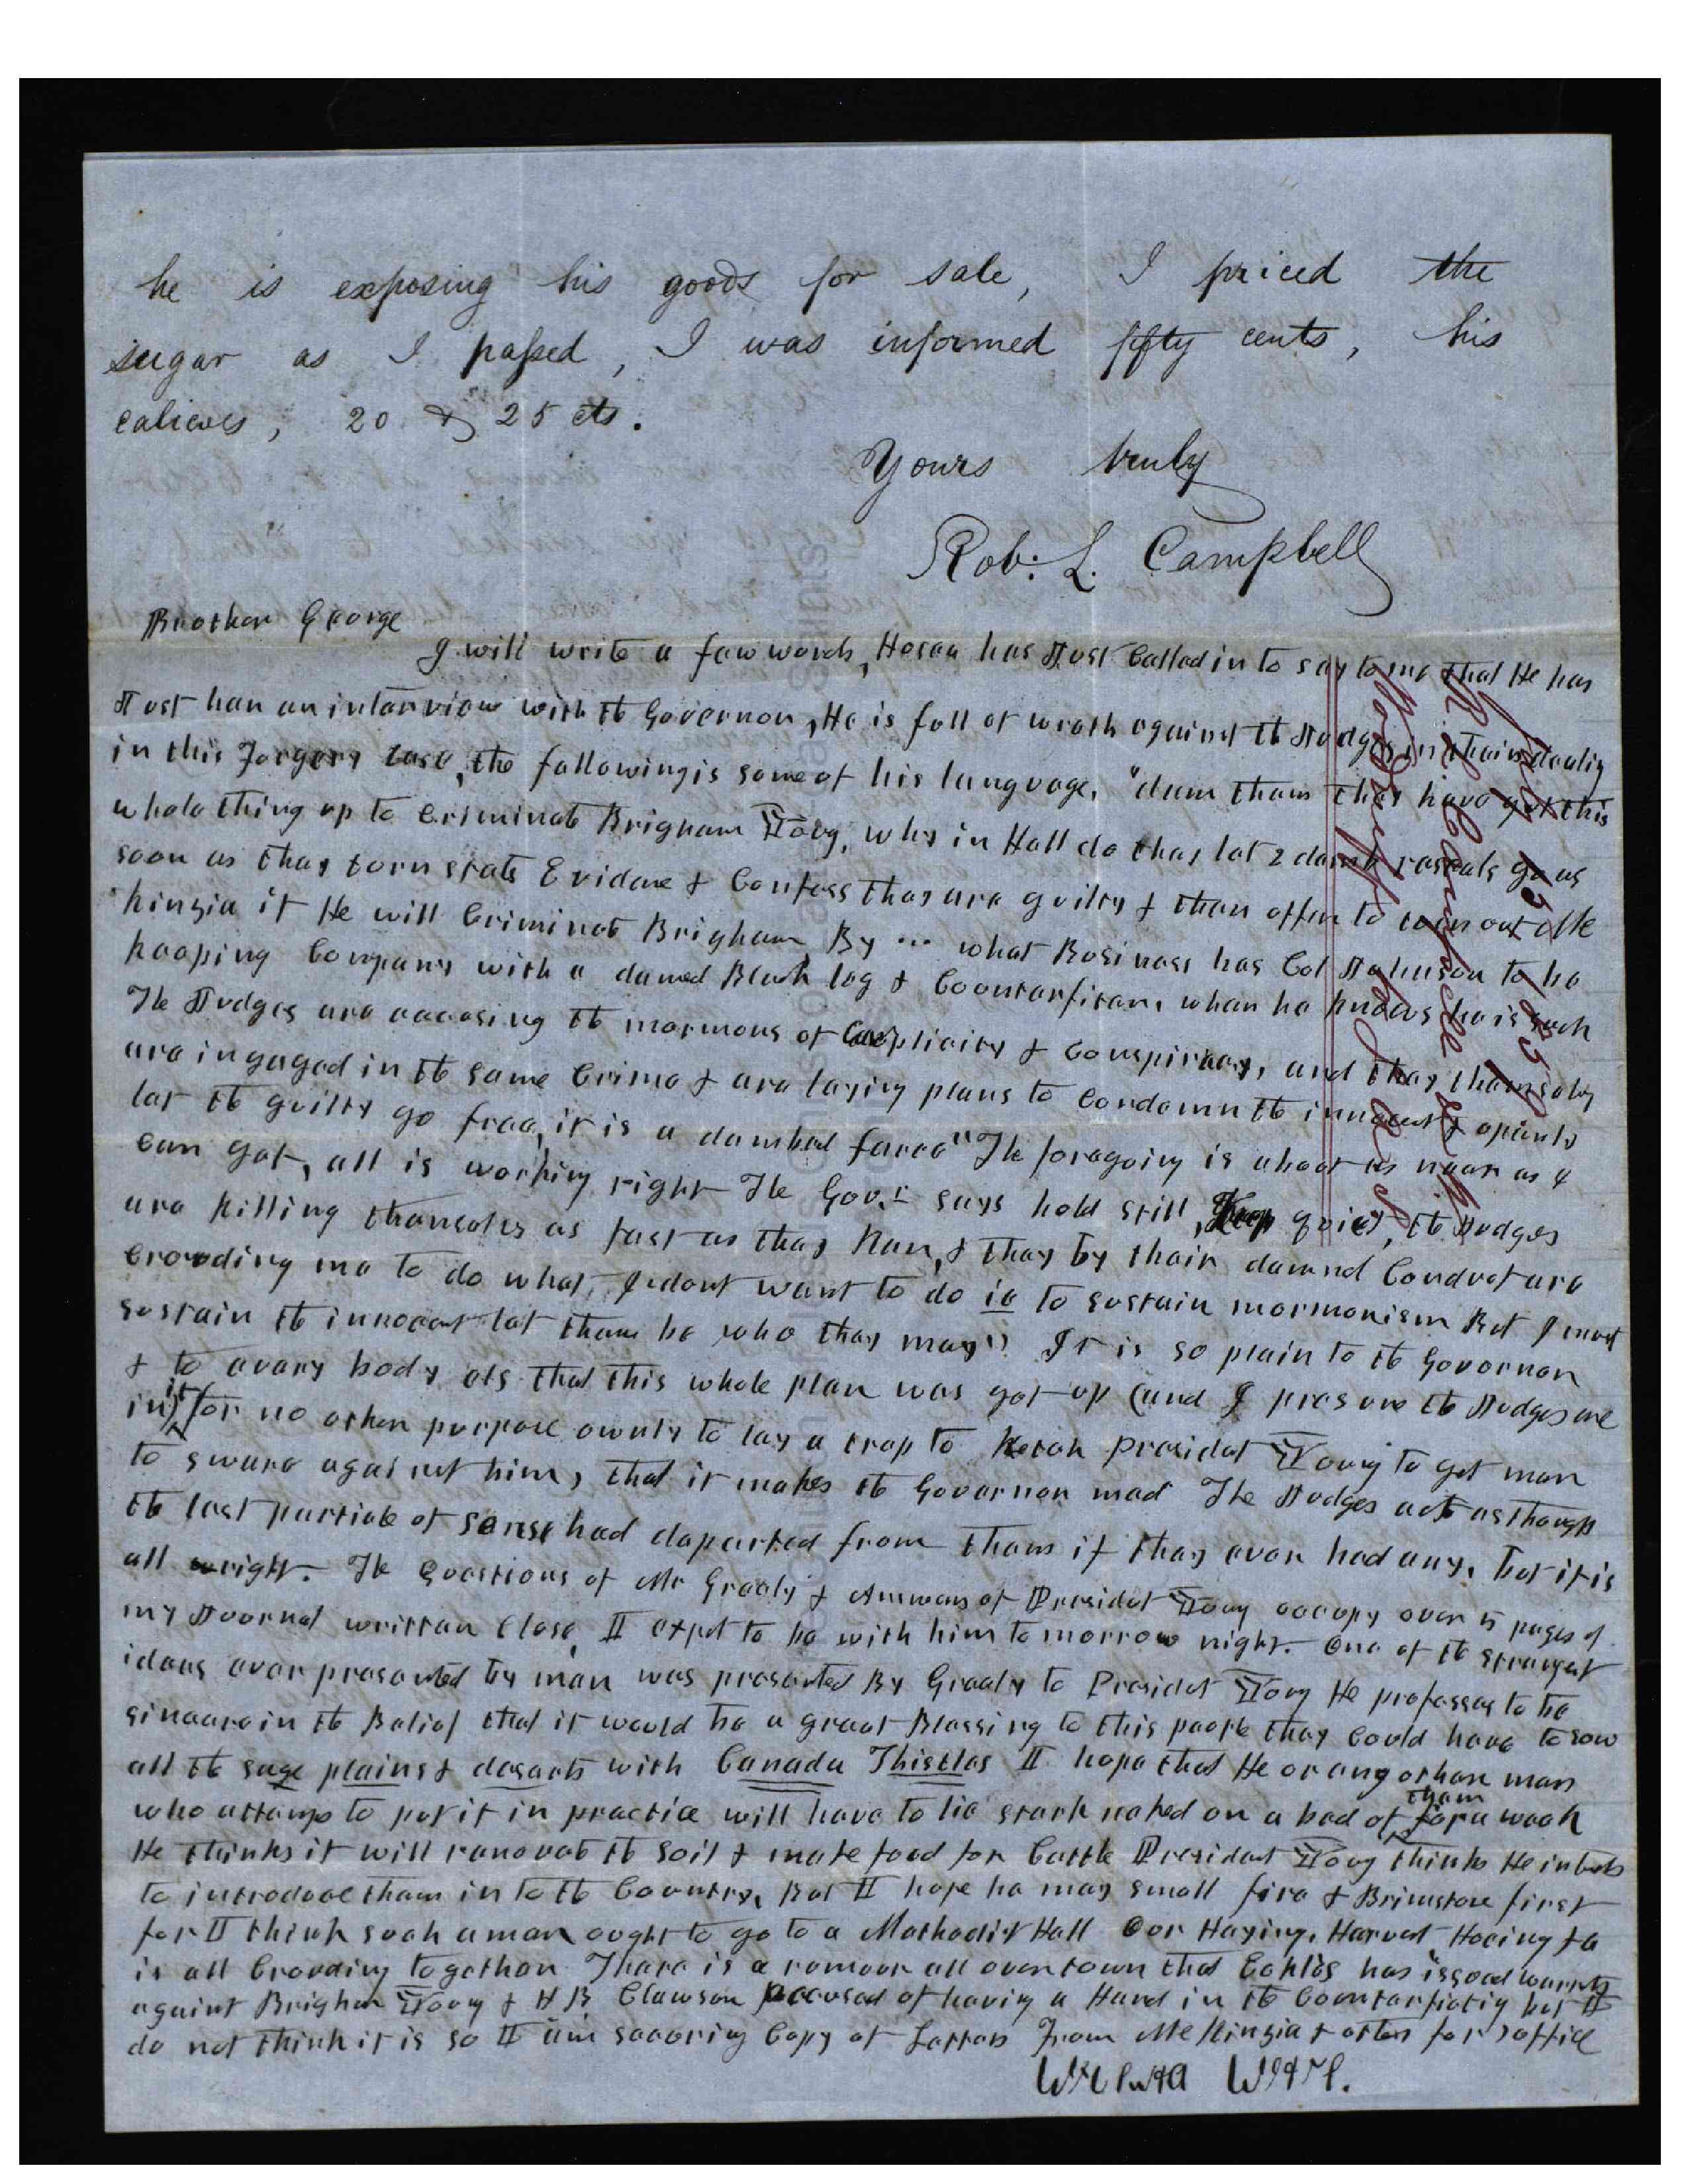 he is exposing his goods for sale, I priced the
sugar as I passed, I was informed fifty cents, his
calicoes, 20 & 25 cts.
Yours truly
Rob: L. Campbell
Brother George
I will write a few words, Hosea has Just Called in to say to me that He has
Just han an interview with the Governor, He is full of wrath against the Judges in their dealing
in this Forgery case, the following is some of his language, "dam them they have got this
whole thing up to Criminate Brigham Young, why in Hell do they let 2 damb rascals go as
soon as they torn state Evidence & Confess they are guilty & then offer to turn out Mc
Kinzie if He will Criminate Brigham By ... what Business has Col Johnson to be
keeping Company with a damed Black leg & Counterfiter, when he knows he is such
The Judges are accusing the mormons of Complicity & Conspiracy, and they themselvs
are ingaged in the same Crime & are laying plans to Condemn the innocent & openly
let the guilty go free, it is a dambed farce" The foregoing is about as near as I
can get, all is working right The Gov.r says hold still, Keep quiet, the Judges
are killing themselves as fast as they kan, & they by their damnd Conduct are
Crowding me to do what I dont want to do ie to sustain mormonism But I must
sustain the innocent let them be who they may" It is so plain to the Governor
& to every body els that this whole plan was got up (and I presume the Judges are
in it) for no other purpose ownly to lay a trap to Ketch President Young to get men
to sware against him, that it makes the Governor mad The Judges act as though
the last particle of sense had departed from them if they ever had any, but it is
all wright. The Questions of Mr Greely & Answers of President Young occupy over 5 pages of
my Journal written Close, I expet to be with him tomorrow night. One of the strangest
ideas ever presented by man was presented By Greely to President Young He professes to be
sinacere in the Belief that it would be a great Blessing to this people they Could have to sow
all the sage plains & deserts with Canada Thistles I hope that He or any other man
who attemps to put it in practice will have to lie stark naked on a bed of them for a week
He thinks it will renovate the soil & make food for Cattle President Young thinks He intends
to introduce them in to the Country, But I hope he may smell fire & Brimstone first
for I think such a man ought to go to a Methodist Hell Our Haying, Harvest Hoeing &c
is all Crouding together There is a rumour all over town that Eckles has issued warrnts
against Brigham Young & H B Clawson accused of having a Hand in the Counterfieting but I
do not think it is so I am securing Copy of Letters From McKinzie & others for office
July 13 1859
R. L. Campbell &